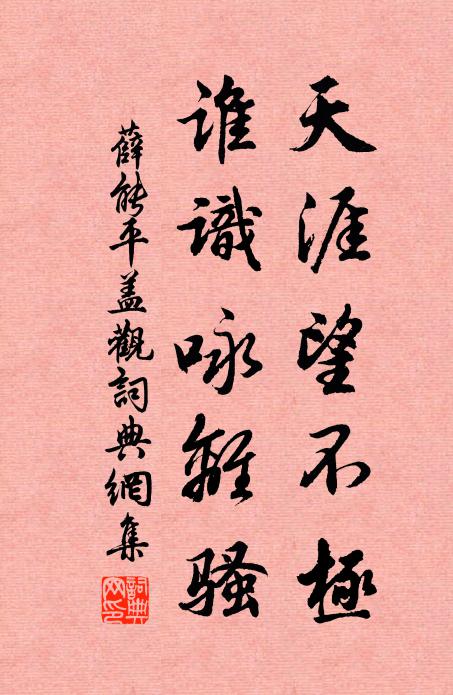 天涯望不極
誰識咏離騷
薛能平蓋觀詞典網集
詞典網印